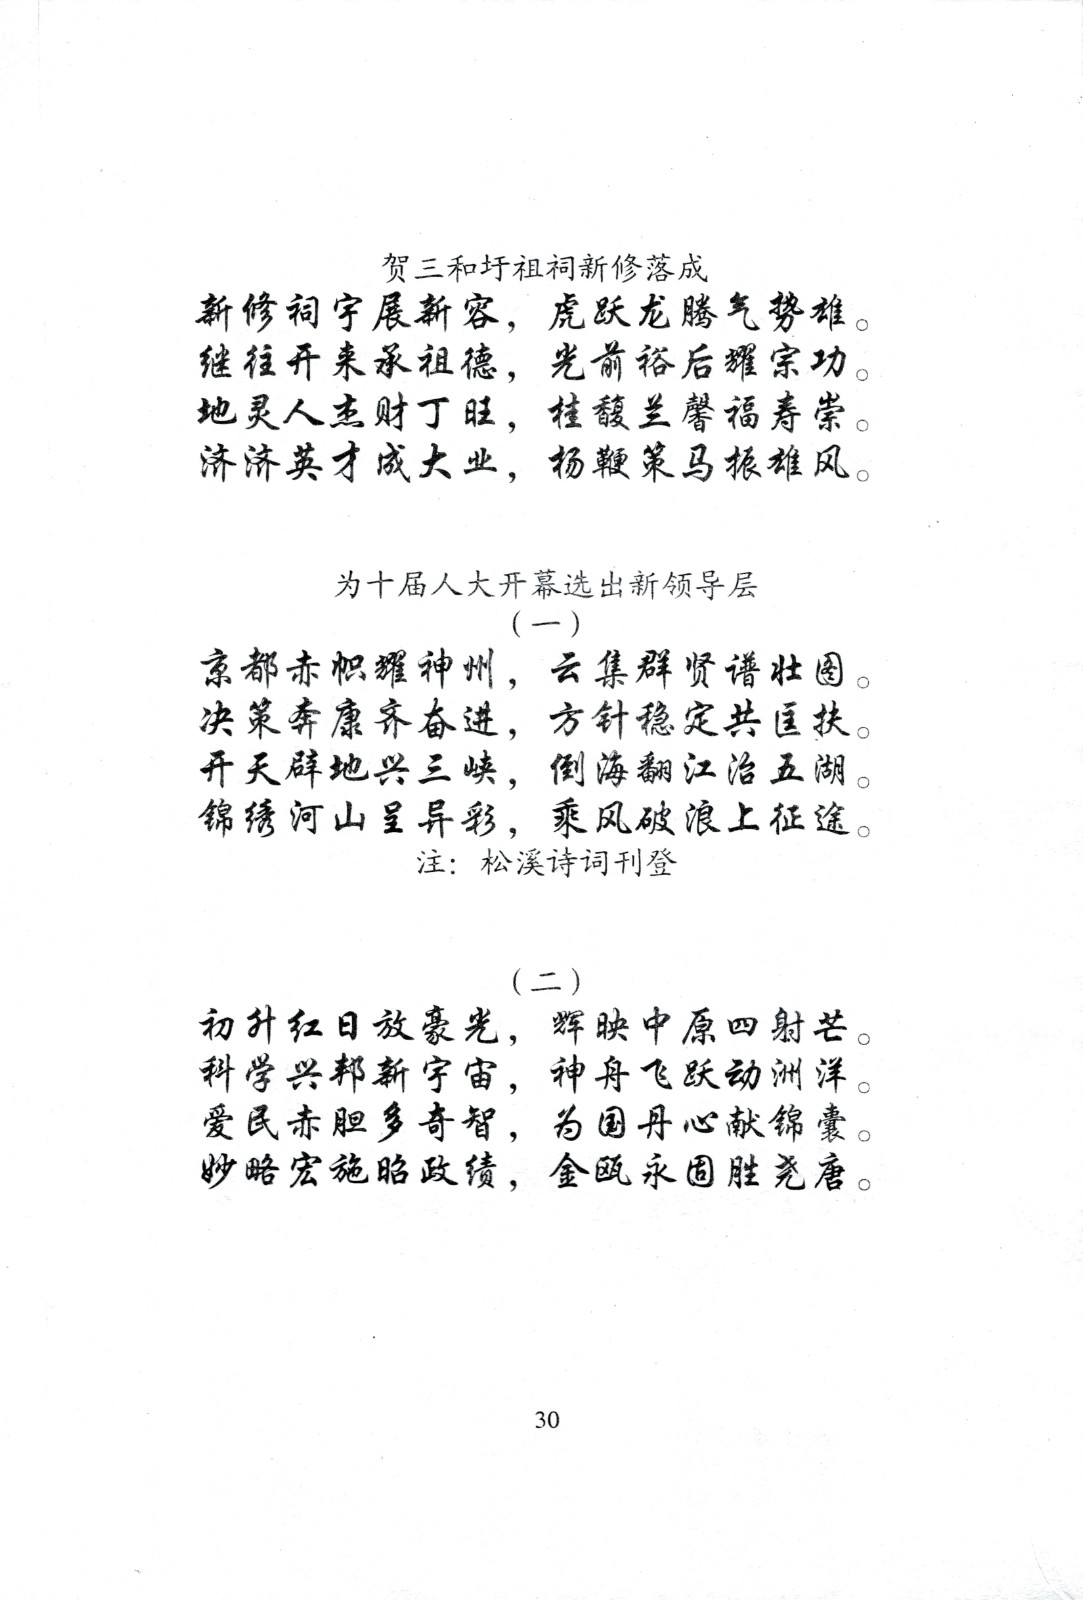 贺三和圩祖祠新修落成
新修祠宇展新容，虎跃龙腾气势雄。
继往开来承祖德，光前裕后耀宗功。
地灵人杰财丁旺，桂馥兰馨福寿崇。
济济英才成大业，杨鞭策马振雄风。
为十届人大开幕选出新领导层
（一）
京都赤帜耀神州，云集群贤谱壮图。
决策奔康齐奋进，方针稳定共匡扶。
开天辟地兴三峡，倒海翻江治五湖。
锦绣河山呈异彩，乘风破浪上征途。
注：松溪诗词刊登
（二）
初升红日放豪光，辉映中原四射芒。
科学兴邦新宇宙，神舟飞跃动洲洋。
爱民赤胆多奇智，为国丹心献锦囊。
妙略宏施昭政绩，金瓯永固胜尧唐。
30